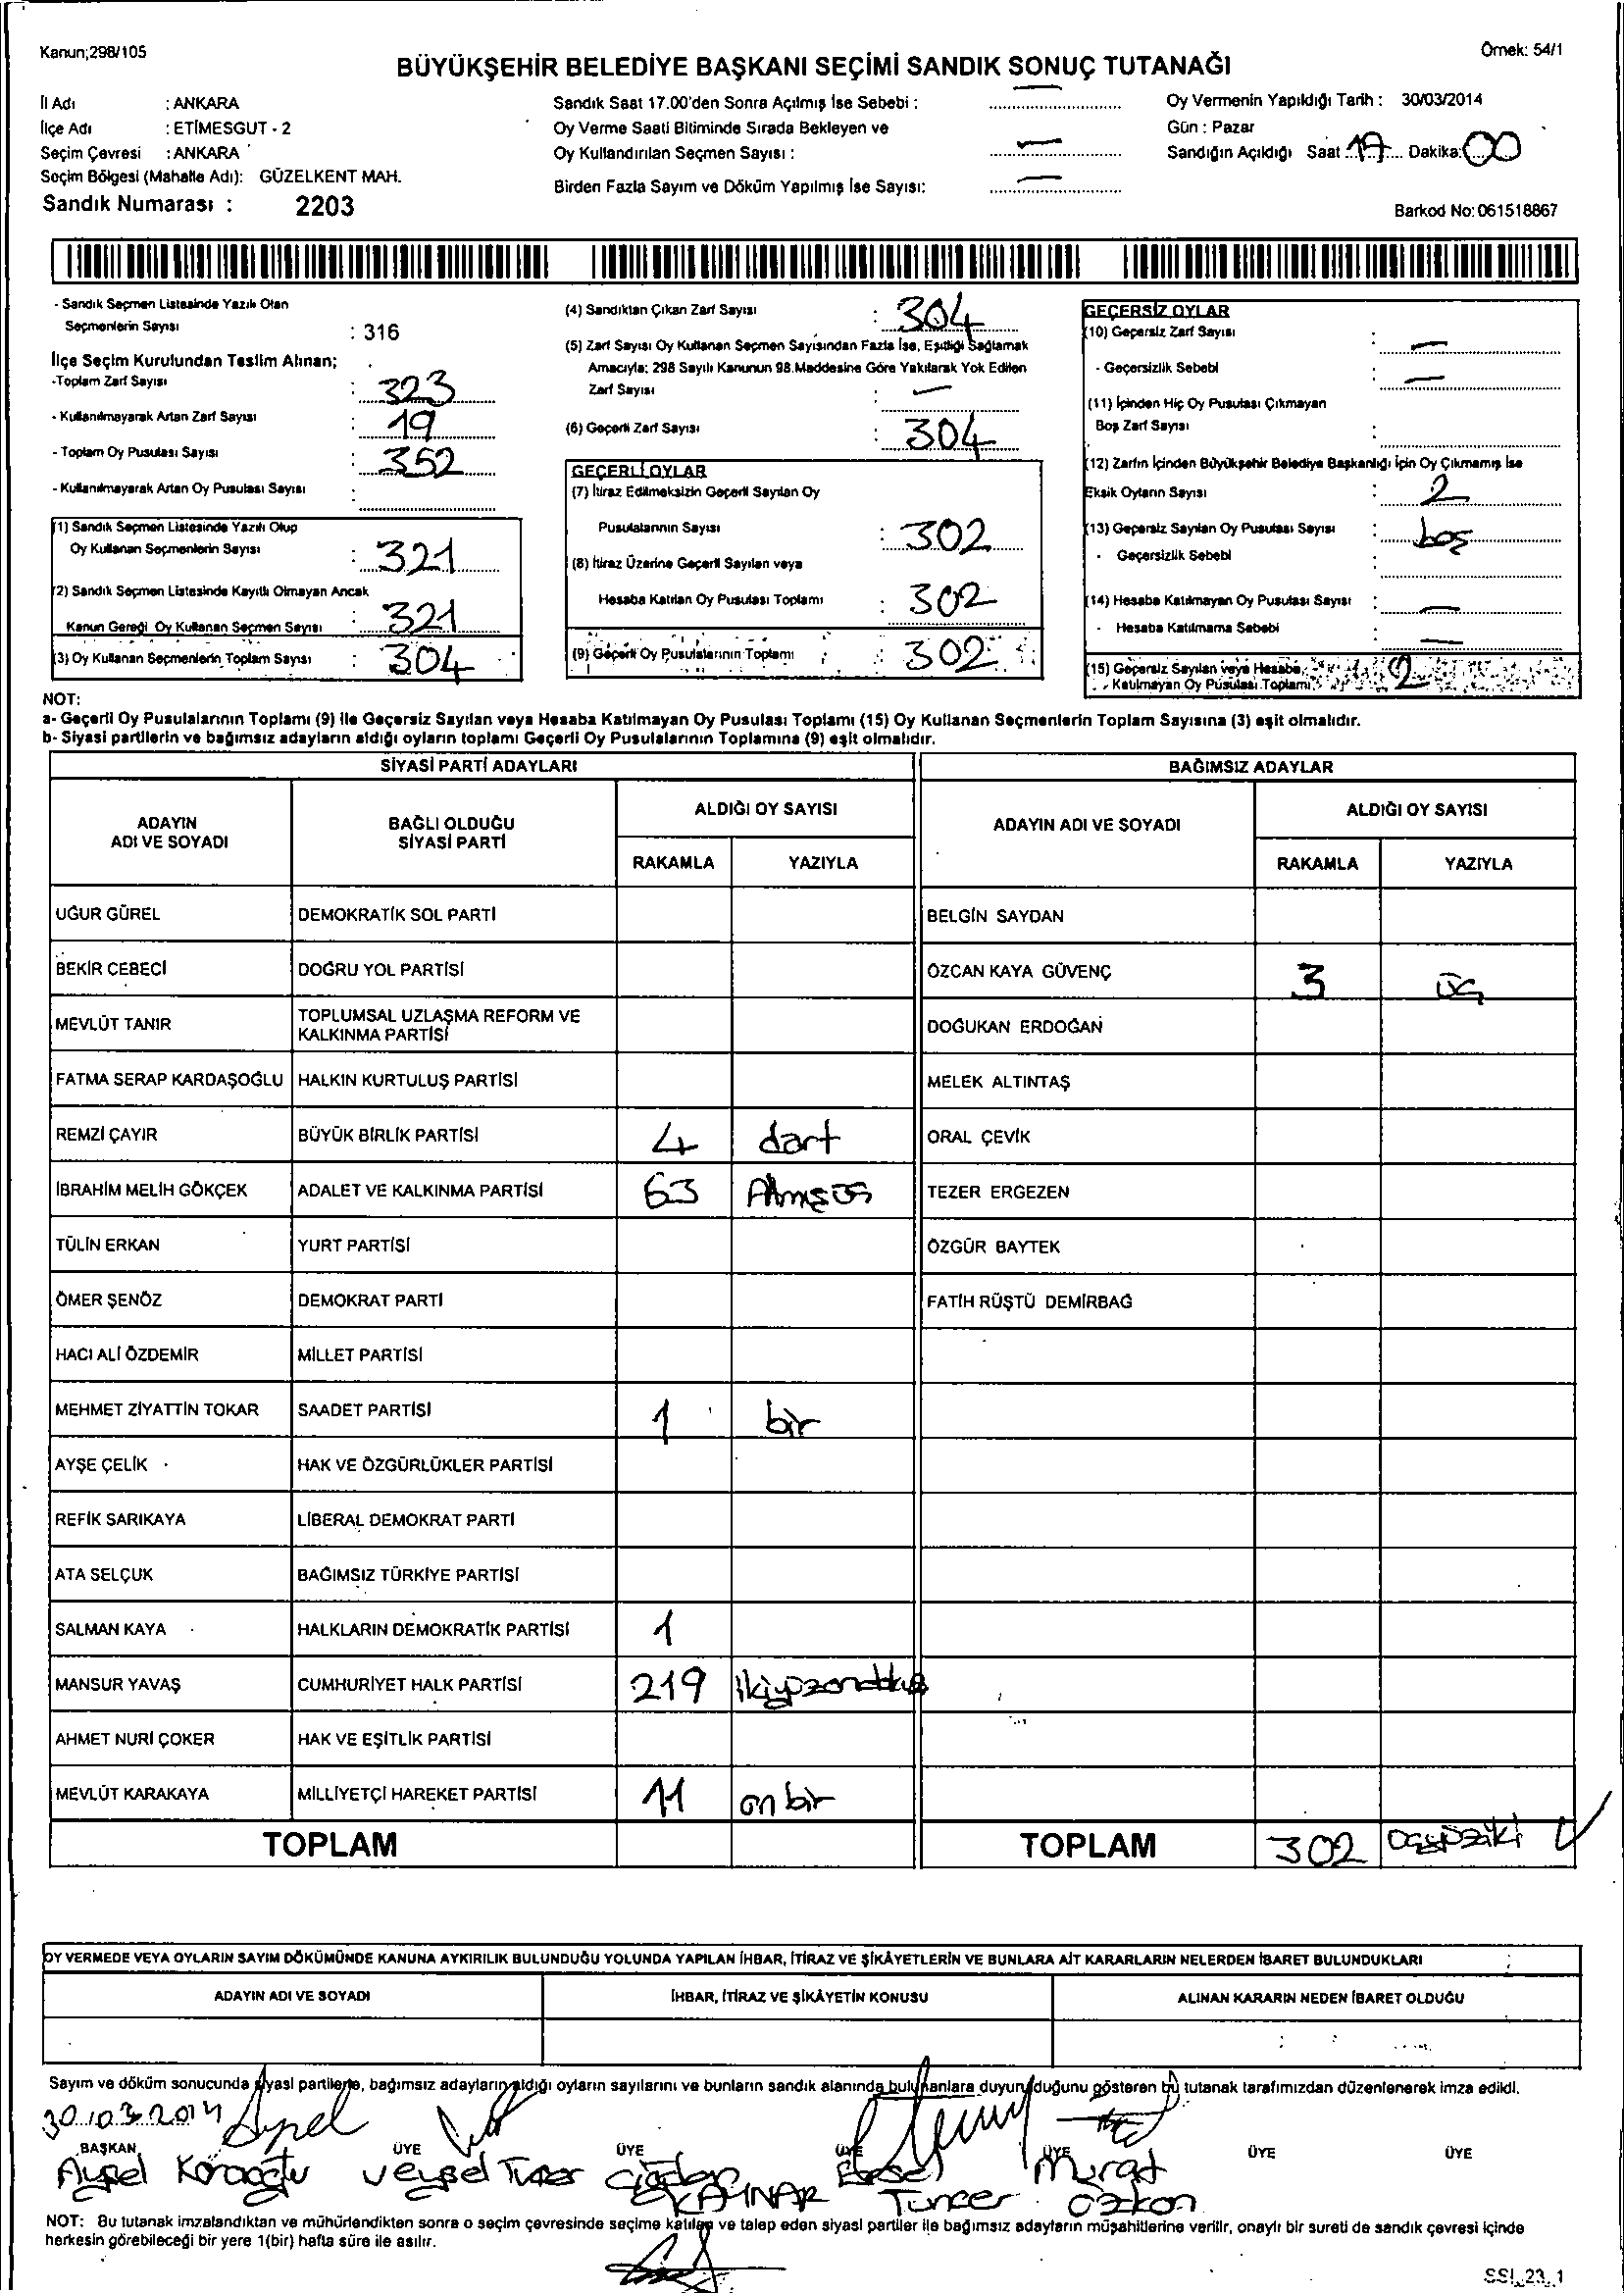 Kanun;298/105
Örnek: 54/1
BÜYÜKŞEHİR BELEDİYE BAŞKANI SEÇİMİ SANDIK SONUÇ TUTANAĞI
İl Adı : ANKARA
İlçe Adı : ETİMESGUT - 2
Seçim Çevresi : ANKARA
Seçim Bölgesi (Mahalle Adı): GÜZELKENT MAH.
Sandık Numarası : 2203
Sandık Saat 17.00'den Sonra Açılmış İse Sebebi : —
Oy Verme Saati Bitiminde Sırada Bekleyen ve
Oy Kullandırılan Seçmen Sayısı : —
Birden Fazla Sayım ve Döküm Yapılmış İse Sayısı: —
Oy Vermenin Yapıldığı Tarih : 30/03/2014
Gün : Pazar
Sandığın Açıldığı Saat 17 Dakika: 00
Barkod No: 061518867
- Sandık Seçmen Listesinde Yazılı Olan
Seçmenlerin Sayısı : 316
İlçe Seçim Kurulundan Teslim Alınan;
-Toplam Zarf Sayısı : 323
- Kullanılmayarak Artan Zarf Sayısı : 19
- Toplam Oy Pusulası Sayısı : 352
- Kullanılmayarak Artan Oy Pusulası Sayısı :
(1) Sandık Seçmen Listesinde Yazılı Olup
Oy Kullanan Seçmenlerin Sayısı : 321
(2) Sandık Seçmen Listesinde Kayıtlı Olmayan Ancak
Kanun Gereği Oy Kullanan Seçmen Sayısı : 321
(3) Oy Kullanan Seçmenlerin Toplam Sayısı : 304
(4) Sandıktan Çıkan Zarf Sayısı : 304
(5) Zarf Sayısı Oy Kullanan Seçmen Sayısından Fazla İse, Eşitliği Sağlamak
Amacıyla; 298 Sayılı Kanunun 98.Maddesine Göre Yakılarak Yok Edilen
Zarf Sayısı : —
(6) Geçerli Zarf Sayısı : 304
GEÇERLİ OYLAR
(7) İtiraz Edilmeksizin Geçerli Sayılan Oy
Pusulalarının Sayısı : 302
(8) İtiraz Üzerine Geçerli Sayılan veya
Hesaba Katılan Oy Pusulası Toplamı : 302
(9) Geçerli Oy Pusulalarının Toplamı : 302
GEÇERSİZ OYLAR
(10) Geçersiz Zarf Sayısı : —
- Geçersizlik Sebebi : —
(11) İçinden Hiç Oy Pusulası Çıkmayan
Boş Zarf Sayısı :
(12) Zarfın İçinden Büyükşehir Belediye Başkanlığı İçin Oy Çıkmamış İse
Eksik Oyların Sayısı : 2
(13) Geçersiz Sayılan Oy Pusulası Sayısı : boş
- Geçersizlik Sebebi :
(14) Hesaba Katılmayan Oy Pusulası Sayısı : —
- Hesaba Katılmama Sebebi : —
(15) Geçersiz Sayılan veya Hesaba
Katılmayan Oy Pusulası Toplamı 2
NOT:
a- Geçerli Oy Pusulalarının Toplamı (9) ile Geçersiz Sayılan veya Hesaba Katılmayan Oy Pusulası Toplamı (15) Oy Kullanan Seçmenlerin Toplam Sayısına (3) eşit olmalıdır.
b- Siyasi partilerin ve bağımsız adayların aldığı oyların toplamı Geçerli Oy Pusulalarının Toplamına (9) eşit olmalıdır.
SİYASİ PARTİ ADAYLARI
ADAYIN ADI VE SOYADI BAĞLI OLDUĞU SİYASİ PARTİ ALDIĞI OY SAYISI
RAKAMLA YAZIYLA
UĞUR GÜREL DEMOKRATİK SOL PARTİ
BEKİR CEBECİ DOĞRU YOL PARTİSİ
MEVLÜT TANIR TOPLUMSAL UZLAŞMA REFORM VE
KALKINMA PARTİSİ
FATMA SERAP KARDAŞOĞLU HALKIN KURTULUŞ PARTİSİ
REMZİ ÇAYIR BÜYÜK BİRLİK PARTİSİ 4 dört
İBRAHİM MELİH GÖKÇEK ADALET VE KALKINMA PARTİSİ 63 Atmışüç
TÜLİN ERKAN YURT PARTİSİ
ÖMER ŞENÖZ DEMOKRAT PARTİ
HACI ALİ ÖZDEMİR MİLLET PARTİSİ
MEHMET ZİYATTİN TOKAR SAADET PARTİSİ 1 bir
AYŞE ÇELİK HAK VE ÖZGÜRLÜKLER PARTİSİ
REFİK SARIKAYA LİBERAL DEMOKRAT PARTİ
ATA SELÇUK BAĞIMSIZ TÜRKİYE PARTİSİ
SALMAN KAYA HALKLARIN DEMOKRATİK PARTİSİ 1
MANSUR YAVAŞ CUMHURİYET HALK PARTİSİ 219 ikiyüzondokuz
AHMET NURİ ÇOKER HAK VE EŞİTLİK PARTİSİ
MEVLÜT KARAKAYA MİLLİYETÇİ HAREKET PARTİSİ 11 on bir
TOPLAM
BAĞIMSIZ ADAYLAR
ADAYIN ADI VE SOYADI ALDIĞI OY SAYISI
RAKAMLA YAZIYLA
BELGİN SAYDAN
ÖZCAN KAYA GÜVENÇ 3 üç
DOĞUKAN ERDOĞAN
MELEK ALTINTAŞ
ORAL ÇEVİK
TEZER ERGEZEN
ÖZGÜR BAYTEK
FATİH RÜŞTÜ DEMİRBAĞ
TOPLAM 302 üçyüziki
OY VERMEDE VEYA OYLARIN SAYIM DÖKÜMÜNDE KANUNA AYKIRILIK BULUNDUĞU YOLUNDA YAPILAN İHBAR, İTİRAZ VE ŞİKÂYETLERİN VE BUNLARA AİT KARARLARIN NELERDEN İBARET BULUNDUKLARI
ADAYIN ADI VE SOYADI İHBAR, İTİRAZ VE ŞİKÂYETİN KONUSU ALINAN KARARIN NEDEN İBARET OLDUĞU
Sayım ve döküm sonucunda siyasi partilerle, bağımsız adayların aldığı oyların sayılarını ve bunların sandık alanında bulunanlara duyurulduğunu gösteren bu tutanak tarafımızdan düzenlenerek imza edildi.
30.03.2014 Aysel
BAŞKAN ÜYE ÜYE ÜYE ÜYE ÜYE ÜYE
Aysel Köroğlu Veysel Tuncer Çiğdem KAYNAR Tuncer Murat Özkan
NOT: Bu tutanak imzalandıktan ve mühürlendikten sonra o seçim çevresinde seçime katılan ve talep eden siyasi partiler ile bağımsız adayların müşahitlerine verilir, onaylı bir sureti de sandık çevresi içinde
herkesin görebileceği bir yere 1(bir) hafta süre ile asılır.
SSI_23_1